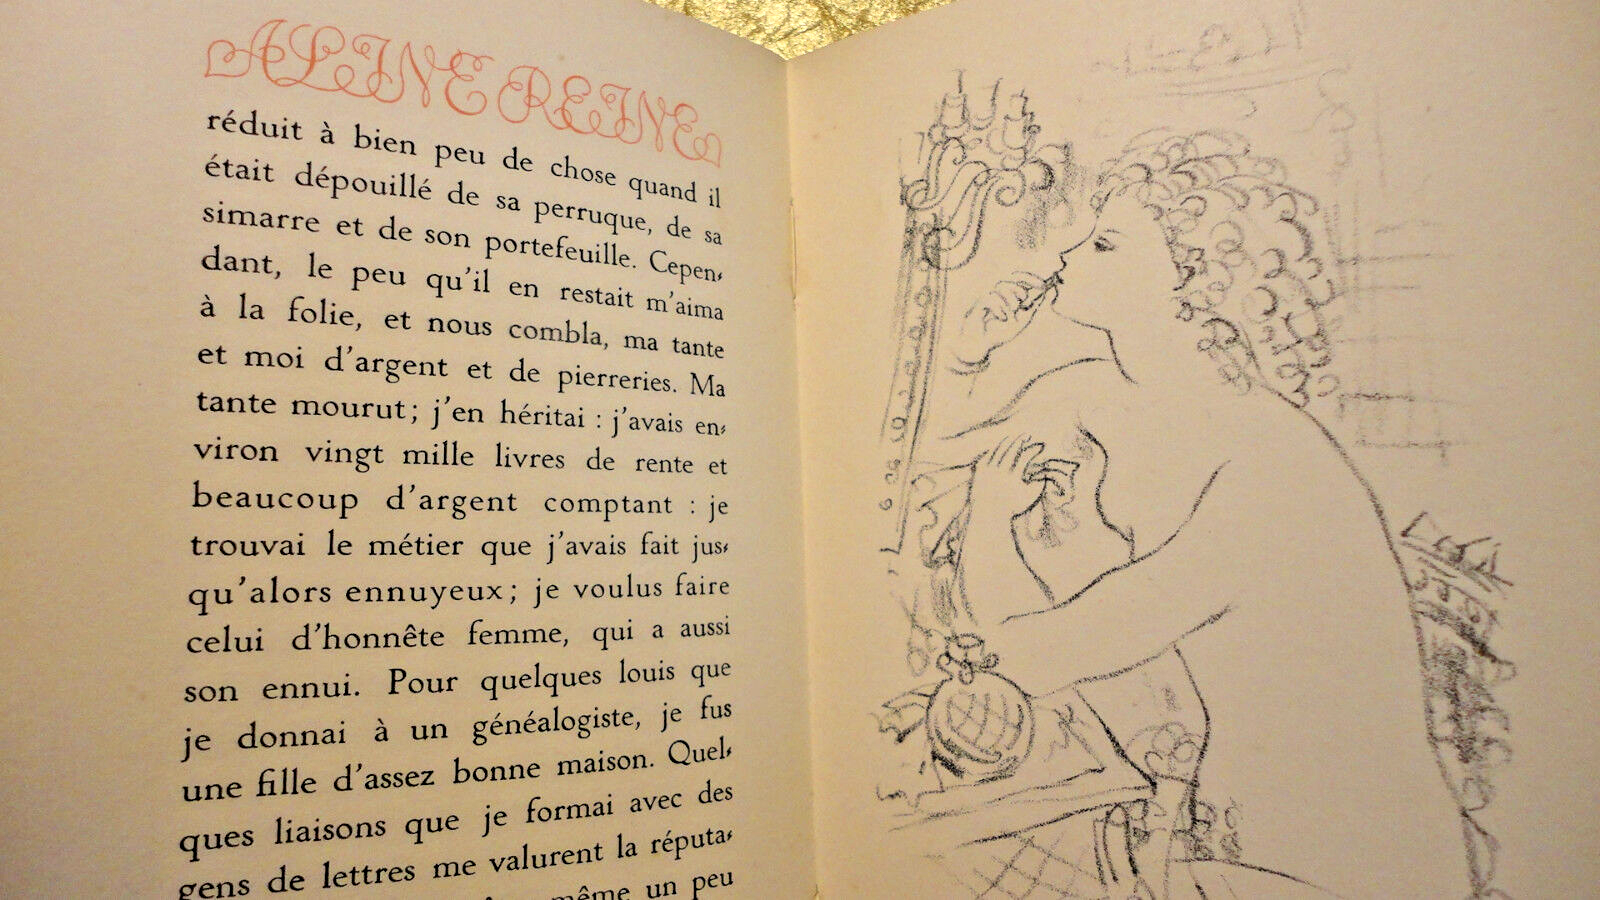 ALINE REINE
réduit à bien peu de chose quand il
était dépouillé de sa perruque, de sa
simarre et de son portefeuille. Cepen-
dant, le peu qu'il en restait m'aima
à la folie, et nous combla, ma tante
et moi d'argent et de pierreries. Ma
tante mourut; j'en héritai : j'avais en-
viron vingt mille livres de rente et
beaucoup d'argent comptant : je
trouvai le métier que j'avais fait jus-
qu'alors ennuyeux; je voulus faire
celui d'honnête femme, qui a aussi
son ennui. Pour quelques louis que
je donnai à un généalogiste, je fus
une fille d'assez bonne maison. Quel-
ques liaisons que je formai avec des
gens de lettres me valurent la réputa-
même un peu